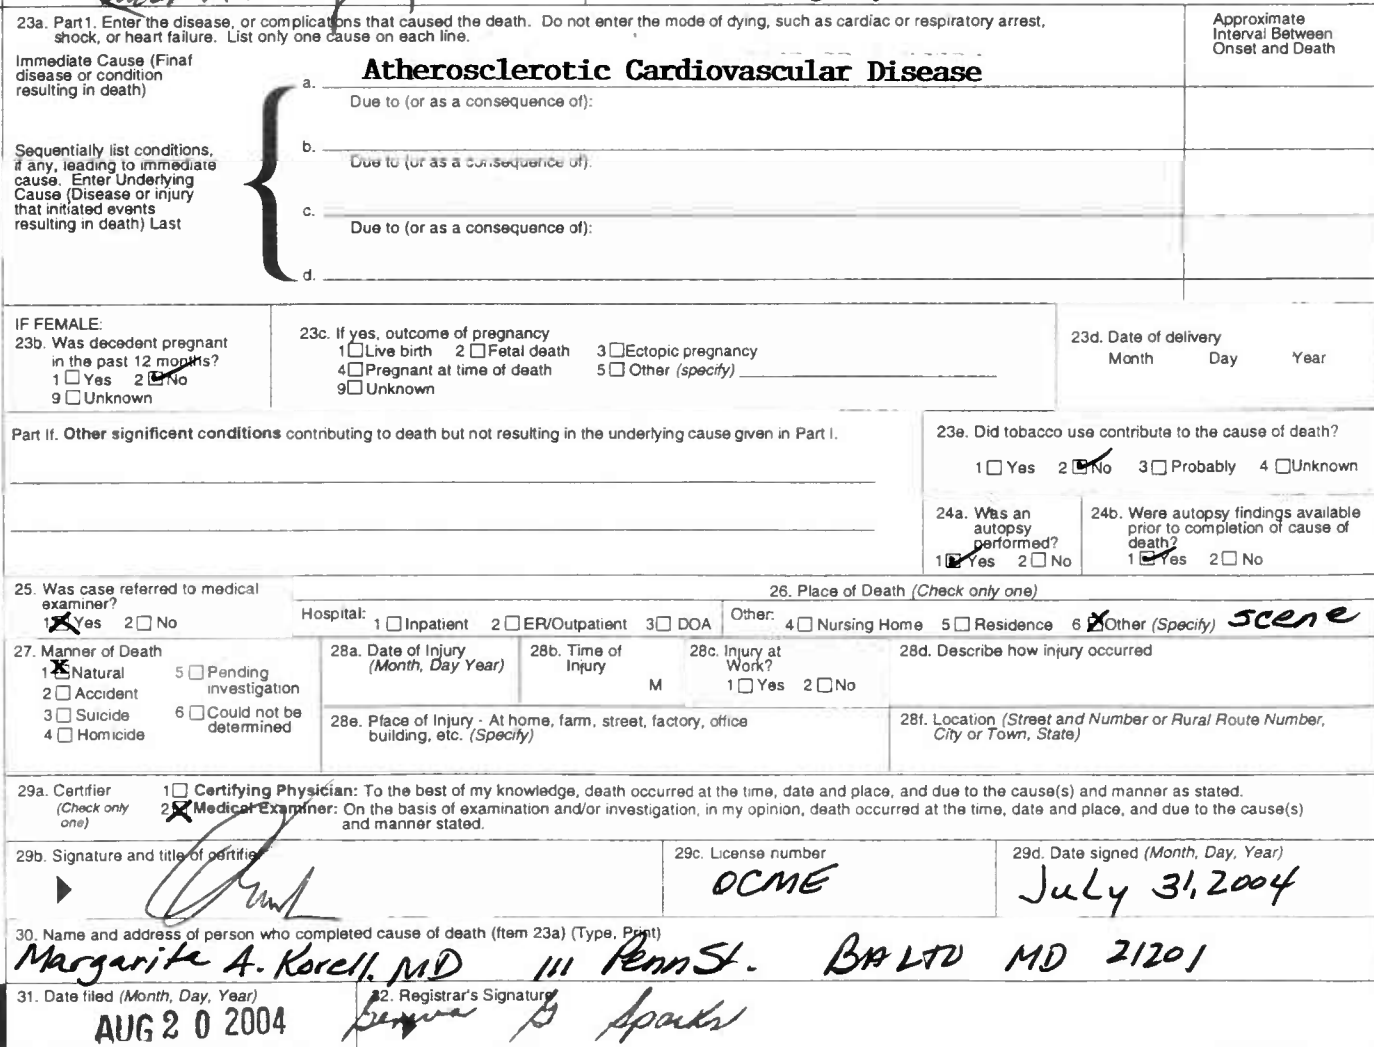 23a. Part1. Enter the disease, or complications that caused the death. Do not enter the mode of dying, such as cardiac or respiratory arrest,
shock, or heart failure. List only one cause on each line.
Approximate
Interval Between
Onset and Death
Immediate Cause (Final
disease or condition
resulting in death)
a. Atherosclerotic Cardiovascular Disease
Due to (or as a consequence of):
b.
Sequentially list conditions,
if any, leading to immediate
cause. Enter Underlying
Cause (Disease or injury
that initiated events
resulting in death) Last
Due to (or as a consequence of):
c.
Due to (or as a consequence of):
d.
IF FEMALE:
23b. Was decedent pregnant
in the past 12 months?
1 ☐ Yes 2 ☑ No
9 ☐ Unknown
23c. If yes, outcome of pregnancy
1 ☐ Live birth 2 ☐ Fetal death 3 ☐ Ectopic pregnancy
4 ☐ Pregnant at time of death 5 ☐ Other (specify)
9 ☐ Unknown
23d. Date of delivery
Month Day Year
Part II. Other significent conditions contributing to death but not resulting in the underlying cause given in Part I.
23e. Did tobacco use contribute to the cause of death?
1 ☐ Yes 2 ☑ No 3 ☐ Probably 4 ☐ Unknown
24a. Was an
autopsy
performed?
1 ☑ Yes 2 ☐ No
24b. Were autopsy findings available
prior to completion of cause of
death?
1 ☑ Yes 2 ☐ No
25. Was case referred to medical
examiner?
1 ☒ Yes 2 ☐ No
26. Place of Death (Check only one)
Hospital: 1 ☐ Inpatient 2 ☐ ER/Outpatient 3 ☐ DOA Other: 4 ☐ Nursing Home 5 ☐ Residence 6 ☒ Other (Specify) scene
27. Manner of Death
1 ☒ Natural 5 ☐ Pending
investigation
2 ☐ Accident
3 ☐ Suicide 6 ☐ Could not be
determined
4 ☐ Homicide
28a. Date of Injury
(Month, Day Year)
28b. Time of
Injury
M
28c. Injury at
Work?
1 ☐ Yes 2 ☐ No
28d. Describe how injury occurred
28e. Place of Injury - At home, farm, street, factory, office
building, etc. (Specify)
28f. Location (Street and Number or Rural Route Number,
City or Town, State)
29a. Certifier
(Check only
one)
1 ☐ Certifying Physician: To the best of my knowledge, death occurred at the time, date and place, and due to the cause(s) and manner as stated.
2 ☒ Medical Examiner: On the basis of examination and/or investigation, in my opinion, death occurred at the time, date and place, and due to the cause(s)
and manner stated.
29b. Signature and title of certifier
29c. License number
OCME
29d. Date signed (Month, Day, Year)
July 31, 2004
30. Name and address of person who completed cause of death (Item 23a) (Type, Print)
Margarita A. Korell, MD 111 Penn St. BALTO MD 21201
31. Date filed (Month, Day, Year)
AUG 20 2004
32. Registrar's Signature
Geneva G Sparks